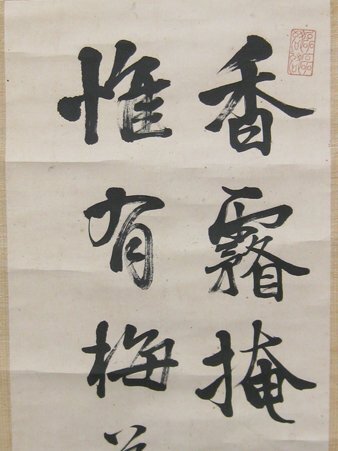 香霧掩
惟有梅